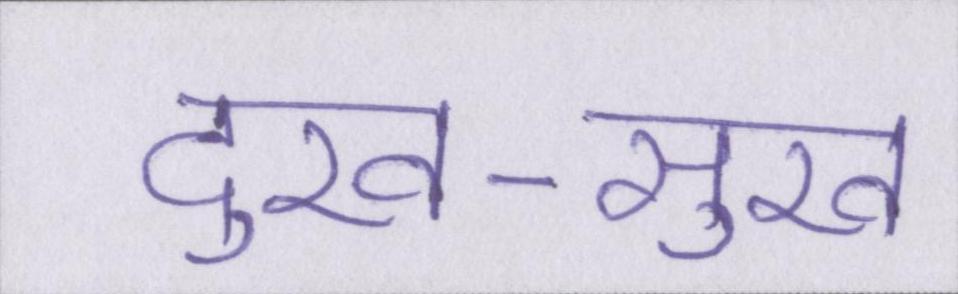 दुख-सुख